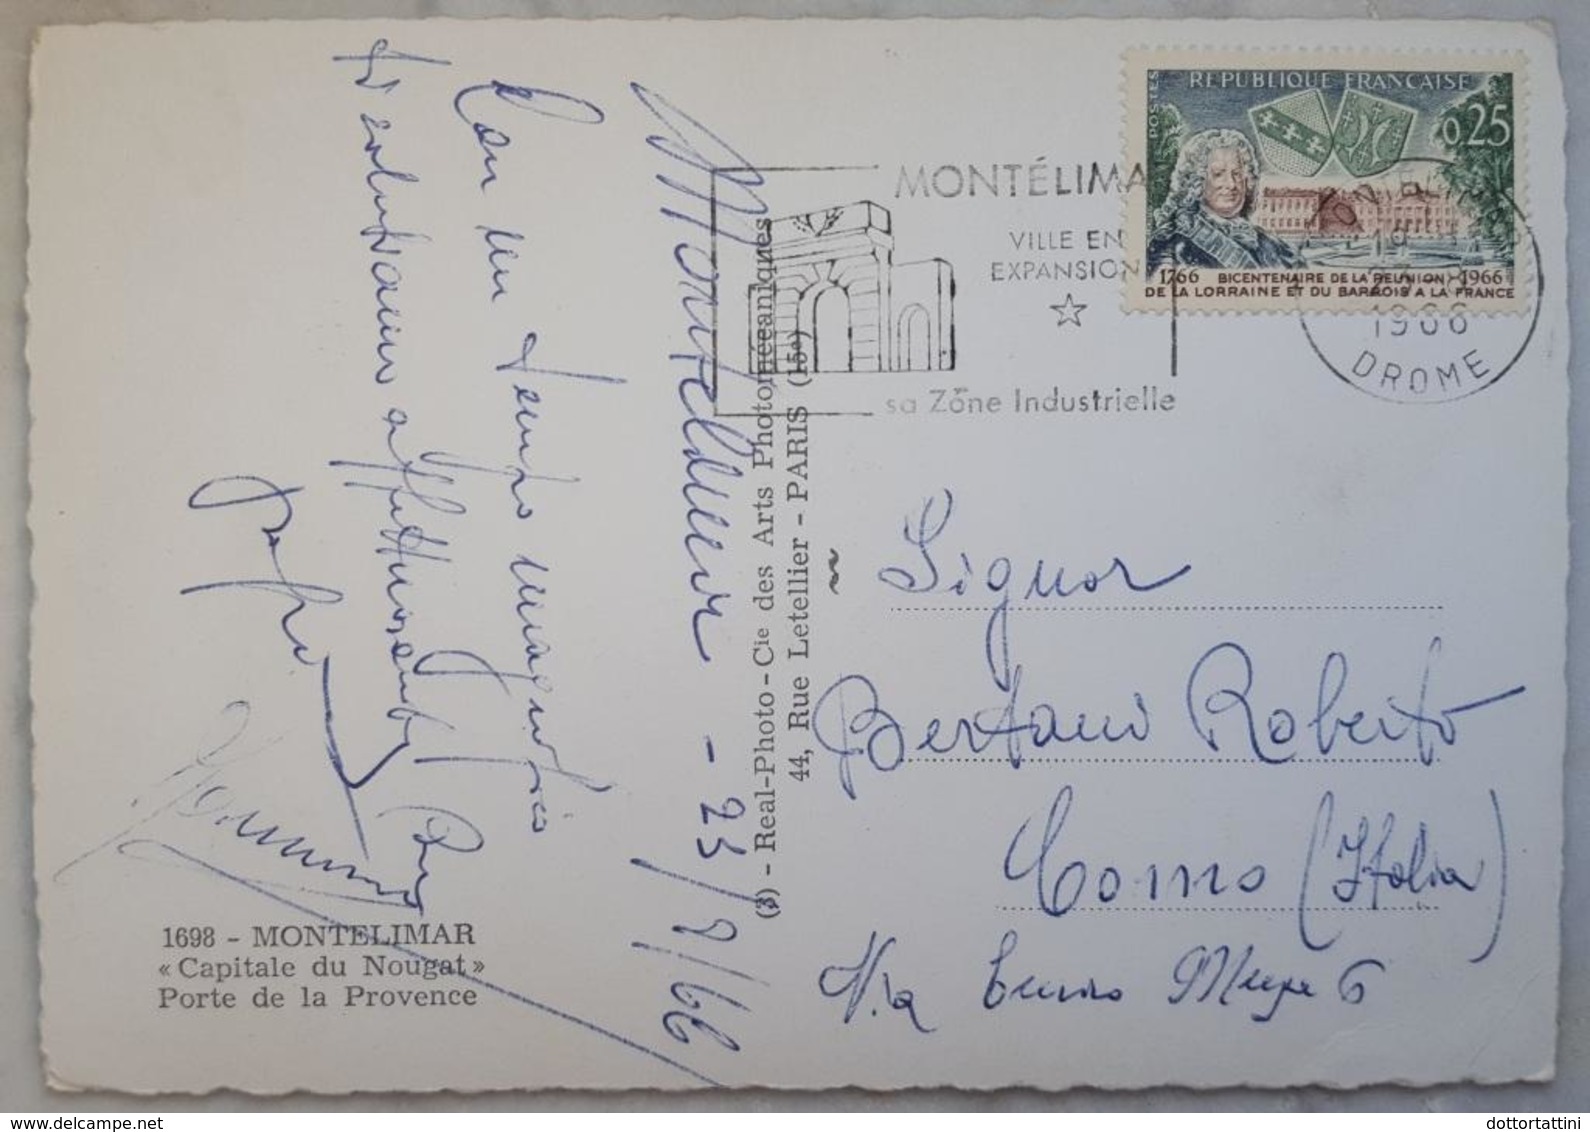 Montelimar - 23/9/66
Con un tempo magnifico
Ti salutiamo affettuosamente
1698 - MONTELIMAR
« Capitale du Nougat »
Porte de la Provence
(3) - Real-Photo - Cie des Arts Photomécaniques
44, Rue Letellier - PARIS (15e)
MONTÉLIMA
VILLE EN
EXPANSION
sa Zône Industrielle
1966
DROME
POSTES
REPUBLIQUE FRANÇAISE
0,25
1766 BICENTENAIRE DE LA REUNION 1966
DE LA LORRAINE ET DU BARROIS A LA FRANCE
Signor
Bertani Roberto
Como (Italia)
Via 6
dottortattini